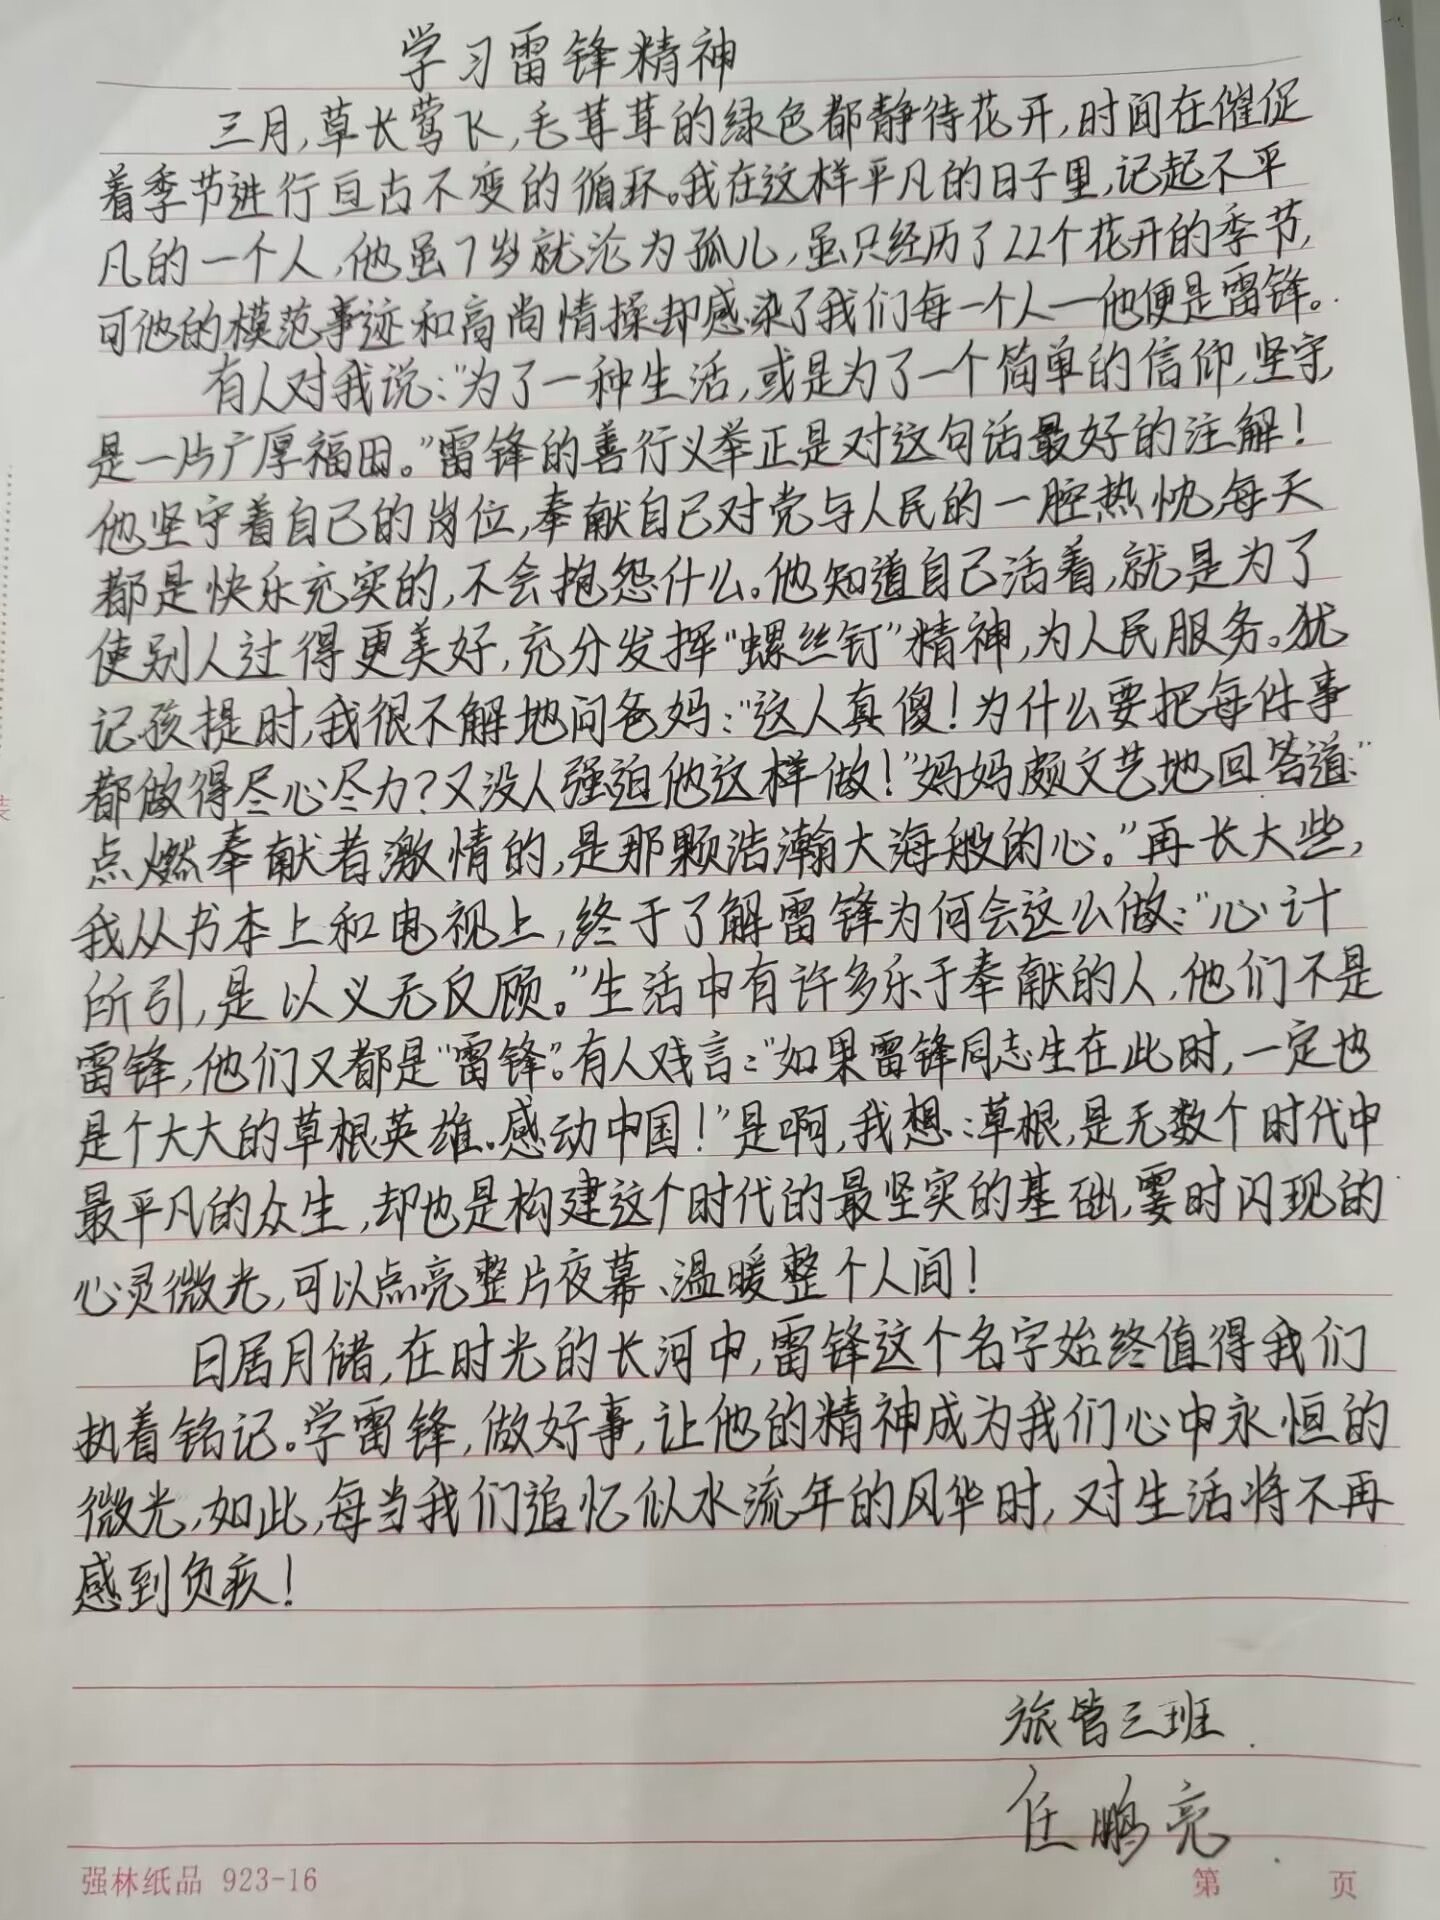 学习雷锋精神
三月,草长莺飞,毛茸茸的绿色都静待花开,时间在催促
着季节进行亘古不变的循环。我在这样平凡的日子里,记起不平
凡的一个人,他虽7岁就沦为孤儿,虽只经历了22个花开的季节,
可他的模范事迹和高尚情操却感染了我们每一个人—他便是雷锋。
有人对我说:"为了一种生活,或是为了一个简单的信仰,坚守,
是一片广厚福田。"雷锋的善行义举正是对这句话最好的注解!
他坚守着自己的岗位,奉献自己对党与人民的一腔热忱,每天
都是快乐充实的,不会抱怨什么。他知道自己活着,就是为了
使别人过得更美好,充分发挥"螺丝钉"精神,为人民服务。犹
记孩提时,我很不解地问爸妈:"这人真傻!为什么要把每件事
都做得尽心尽力?又没人强迫他这样做!"妈妈颇文艺地回答道:"
点燃奉献者激情的,是那颗浩瀚大海般的心。"再长大些,
我从书本上和电视上,终于了解雷锋为何会这么做:"心计
所引,是以义无反顾。"生活中有许多乐于奉献的人,他们不是
雷锋,他们又都是"雷锋"。有人戏言:"如果雷锋同志生在此时,一定也
是个大大的草根英雄、感动中国!"是啊,我想:草根,是无数个时代中
最平凡的众生,却也是构建这个时代的最坚实的基础,霎时闪现的
心灵微光,可以点亮整片夜幕、温暖整个人间!
日居月储,在时光的长河中,雷锋这个名字始终值得我们
执着铭记。学雷锋,做好事,让他的精神成为我们心中永恒的
微光,如此,每当我们追忆似水流年的风华时,对生活将不再
感到负疚!
旅管三班
任鹏亮
强林纸品 923-16
第 页